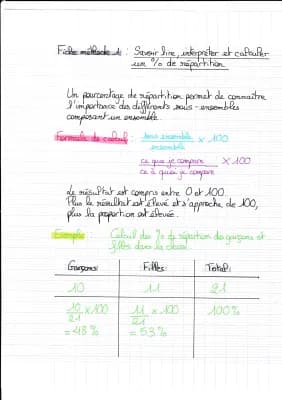 Fiche méthode 1 : Savoir lire, interpréter et calculer
un % de répartition.
Un pourcentage de répartition permet de connaître
l'importance des différents sous-ensembles
composant un ensemble.
Formule de calcul : sous ensemble / ensemble × 100
ce que je compare / ce à quoi je compare × 100
Le résultat est compris entre 0 et 100.
Plus le résultat est élevé et s'approche de 100,
plus la proportion est élevée.
Exemple : Calcul des % de répartition des garçons et
filles dans la classe.
Garçons: Filles: Total:
10 11 21
10/21 × 100 11/21 × 100 100%
= 48% = 53%